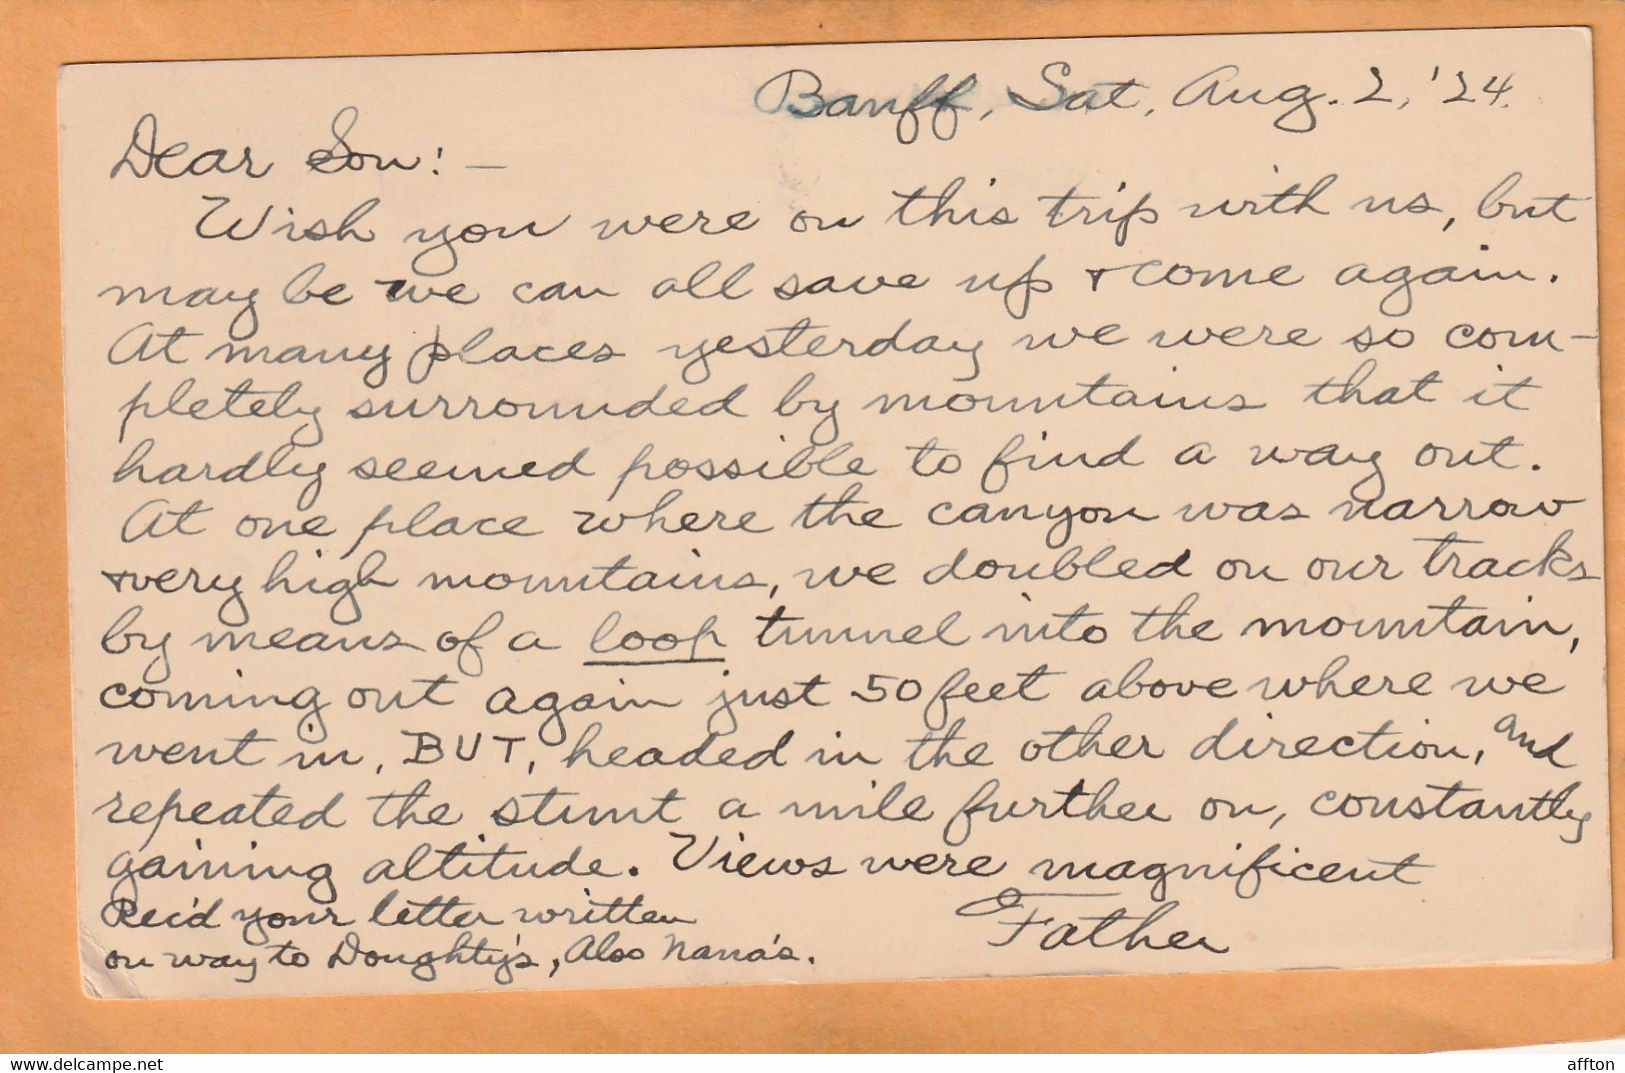 Banff, Sat, Aug. 2, '24.
Dear Son: —
Wish you were on this trip with us, but
may be we can all save up & come again.
At many places yesterday we were so com-
pletely surrounded by mountains that it
hardly seemed possible to find a way out.
At one place where the canyon was narrow
& very high mountains, we doubled on our tracks
by means of a loop tunnel into the mountain,
coming out again just 50 feet above where we
went in, BUT, headed in the other direction, and
repeated the stunt a mile further on, constantly
gaining altitude. Views were magnificent
Rec'd your letter written
on way to Doughty's, Also Nana's.
Father
affton